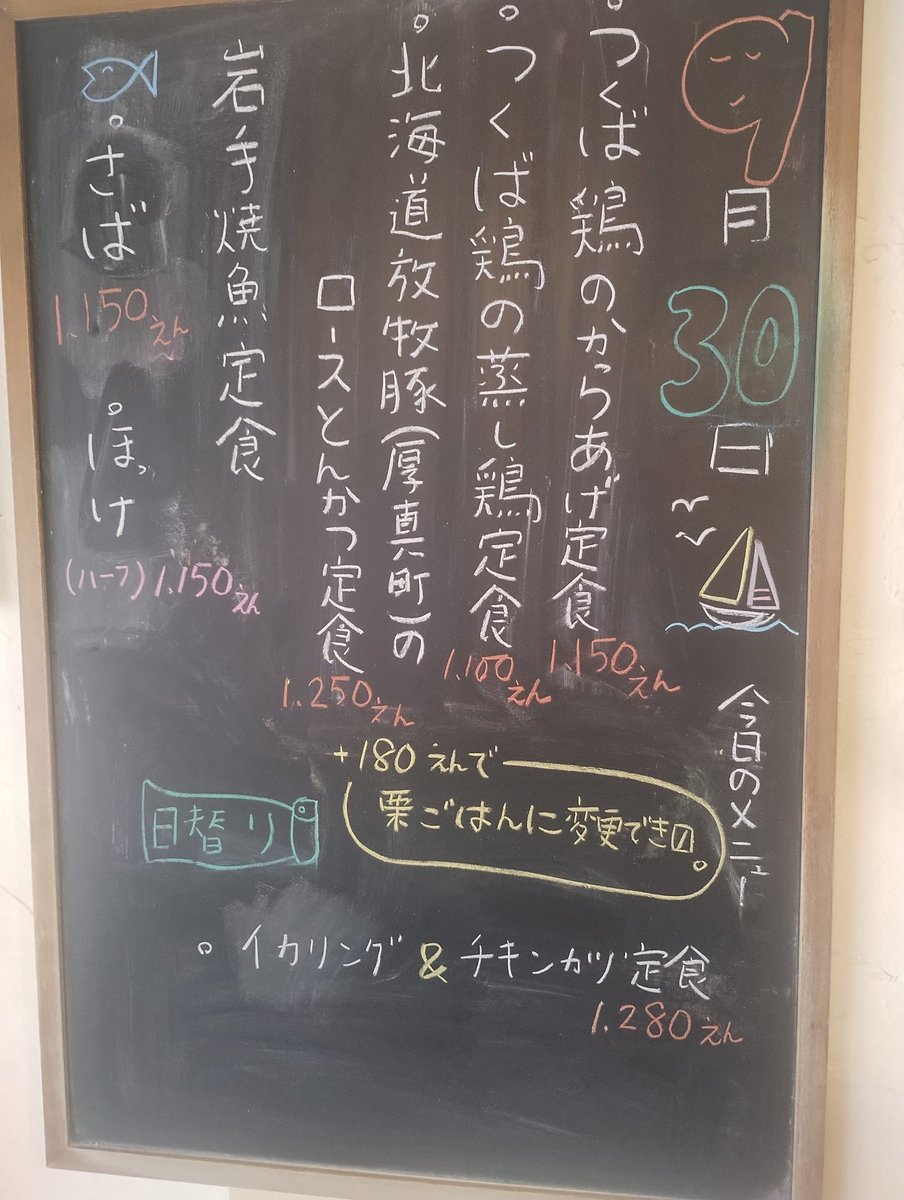 9月30日
今日のメニュー
つくば鶏のからあげ定食
1.150えん
つくば鶏の蒸し鶏定食
1.100えん
北海道放牧豚(厚真町)の
ロースとんかつ定食
1.250えん
岩手焼魚定食
さば
1.150えん
ほっけ
(ハーフ)1.150えん
+180えんで
栗ごはんに変更できの
日替り
イカリング&チキンカツ定食
1.280えん